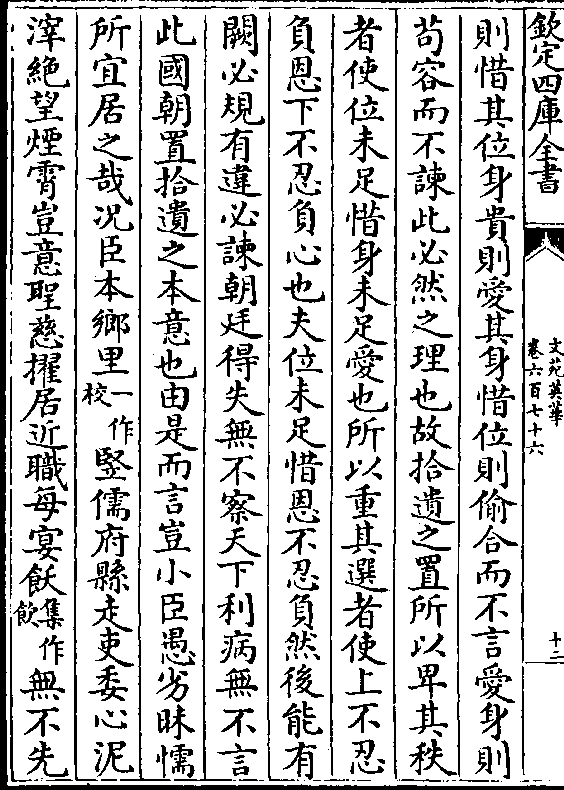 欽定四庫全書
文苑英華
卷六百七十六
十三
則惜其位身貴則愛其身惜位則偷合而不言愛身則
苟容而不諫此必然之理也故拾遺之置所以卑其秩
者使位未足惜身未足愛也所以重其選者使上不忍
負恩下不忍負心也夫位未足惜恩不忍負然後能有
闕必規有違必諫朝廷得失無不察天下利病無不言
此國朝置拾遺之本意也由是而言豈小臣愚劣昧懦
所宜居之哉況臣本鄉里一作校豎儒府縣走吏委心泥
滓絶望煙霄豈意聖慈擢居近職每宴飫集作飲無不先